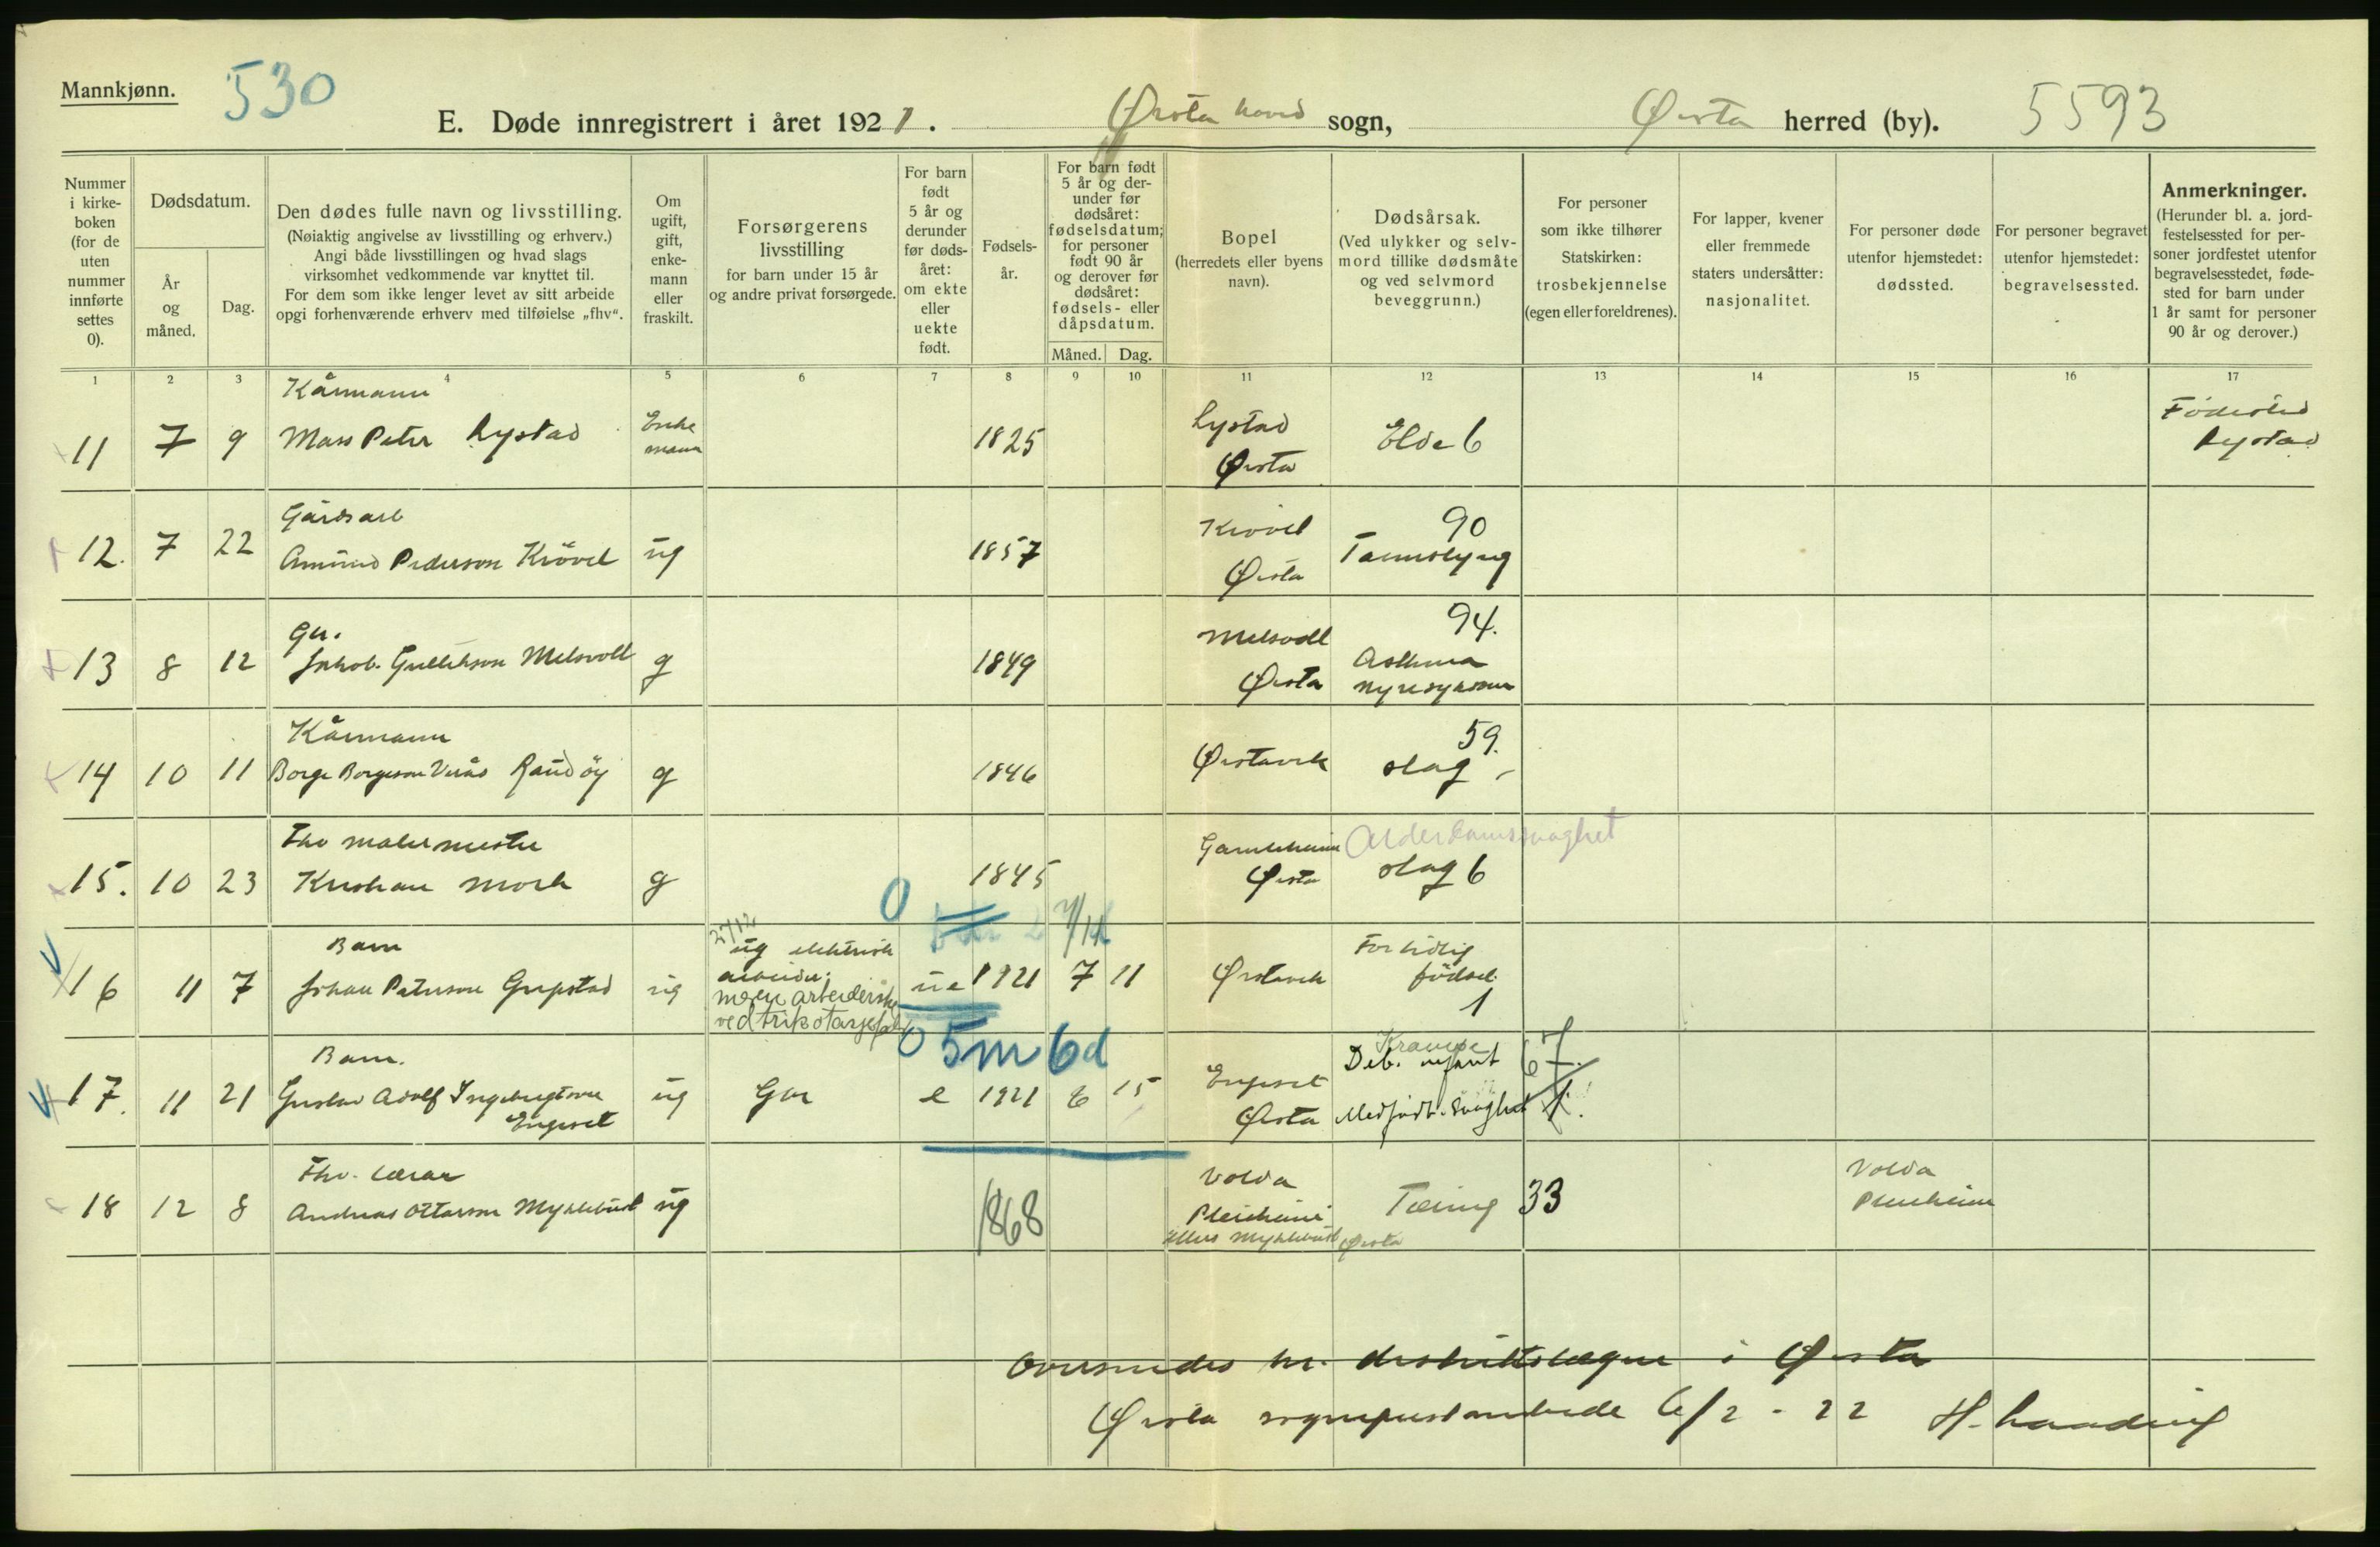 Mannkjønn.
530
E. Døde innregistrert i året 1921. Ørsta hoved sogn, Ørsta herred (by). 5593
Nummer i kirke-boken (for de uten nummer innførte settes 0).
Dødsdatum.
År og måned.
Dag.
Den dødes fulle navn og livsstilling.
(Nøiaktig angivelse av livsstilling og erhverv.)
Angi både livsstillingen og hvad slags
virksomhet vedkommende var knyttet til.
For dem som ikke lenger levet av sitt arbeide
opgi forhenværende erhverv med tilføielse „fhv“.
Om ugift, gift, enke-mann eller fraskilt.
Forsørgerens livsstilling
for barn under 15 år
og andre privat forsørgede.
For barn født 5 år og derunder før døds-året: om ekte eller uekte født.
Fødsels-år.
For barn født 5 år og der-under før dødsåret: fødselsdatum; for personer født 90 år og derover før dødsåret: fødsels- eller dåpsdatum.
Måned. Dag.
Bopel
(herredets eller byens navn).
Dødsårsak.
(Ved ulykker og selv-mord tillike dødsmåte og ved selvmord beveggrunn.)
For personer som ikke tilhører Statskirken: trosbekjennelse (egen eller foreldrenes).
For lapper, kvener eller fremmede staters undersåtter: nasjonalitet.
For personer døde utenfor hjemstedet: dødssted.
For personer begravet utenfor hjemstedet: begravelsessted.
Anmerkninger.
(Herunder bl. a. jord-festelsessted for per-soner jordfestet utenfor begravelsesstedet, føde-sted for barn under 1 år samt for personer 90 år og derover.)
1 2 3 4 5 6 7 8 9 10 11 12 13 14 15 16 17
Kårmann
11 7 9 Mass Peter Lystad Enke mann 1825 Lystad Ørsta Elde 6 Fødested Lystad
Gårdsarb
12. 7 22 Amund Pederson Krövel ug 1857 Krövel Ørsta 90
Gbr.
13 8 12 Jakob Melsvoll g 1849 Melsvoll Ørsta 94. Asthma nyresykdom
Kårmann
14 10 11 Borge Borgeson Raudöy g 1846 Ørstavik 59. slag
Fhv malermester
15. 10 23 Kristian Mork g 1845 Ørsta Alderdomssvaghet slag 6
0
Barn
16 11 7 Johan Peterson Grepstad ug
27/12
ug elektrisk
arbeider:
moren arbeiderske
ved trikotasjefabr
ue 1921 7 11 Ørstavik For tidlig fødsel 1
0 5m 6d
Barn.
17. 11 21 Gustav Adolf Engeset ug Gbr e 1921 6 15 Engeset Ørsta Krampe Deb. infant 67. Medfødt svaghet 1.
Fhv. lærar
18 12 8 Andreas Ottarson Myklebust ug 1868 Volda Pleieheim ellers Myklebust Ørsta Tæring 33 Volda Pleieheim
Oversendes hr. distriktslægen i Ørsta
Ørsta sogneprestembede 6/2 - 22 H.